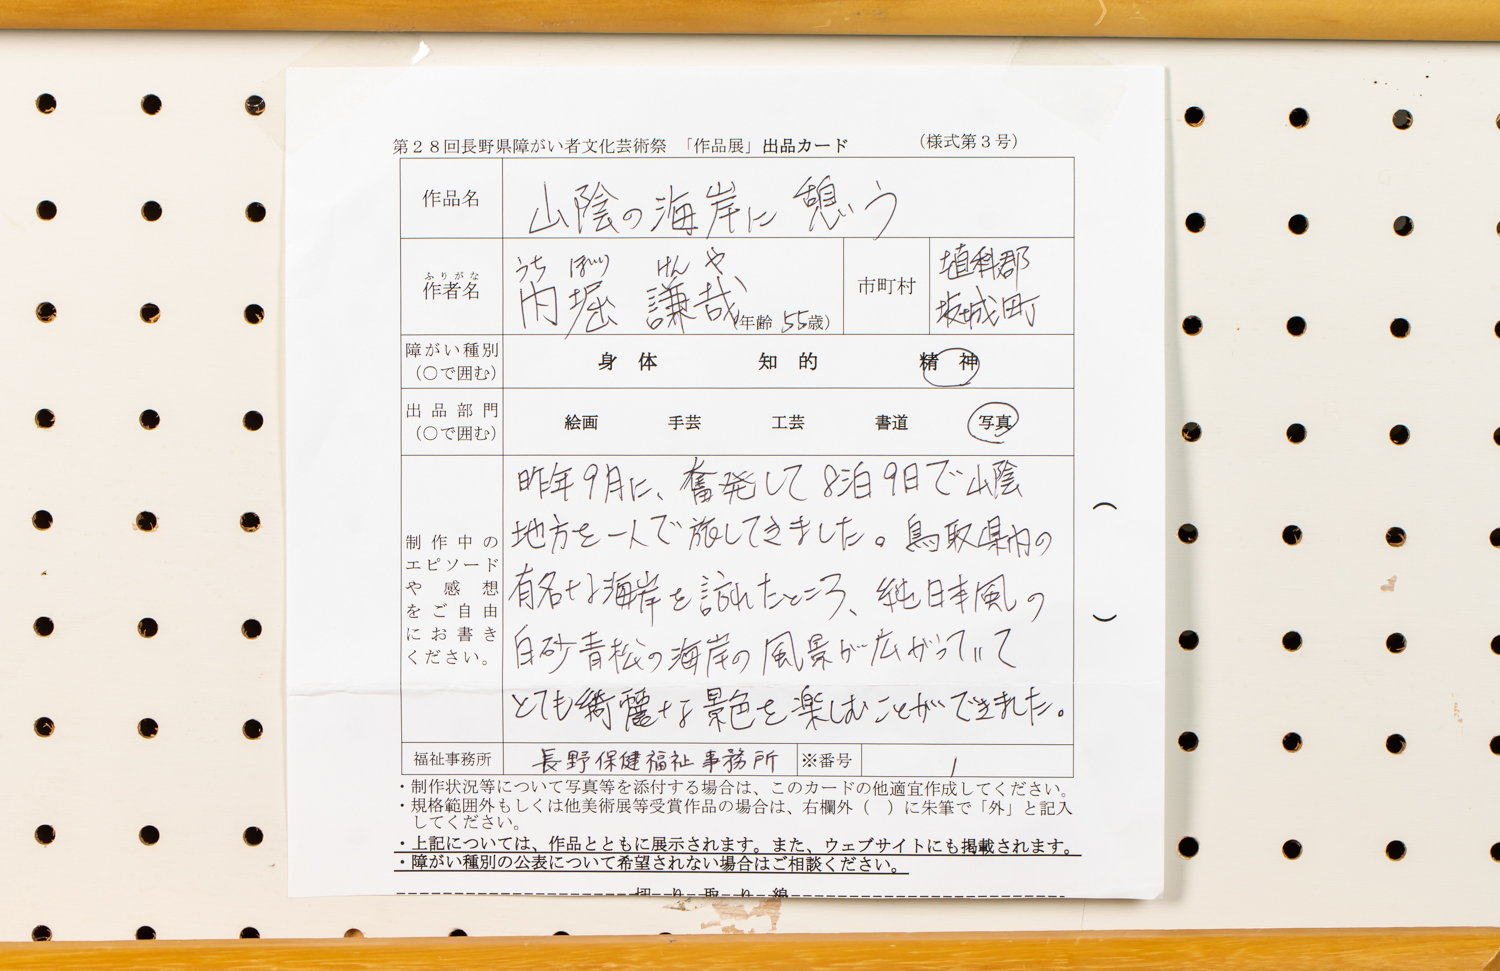 第28回長野県障がい者文化芸術祭 「作品展」出品カード (様式第3号)
作品名 山陰の海岸に 憩いう
ふりがな うち ぼり けん や
作者名 内堀 謙哉 (年齢 55歳)
市町村 埴科郡
坂城町
障がい種別
(○で囲む)
身 体 知 的 精 神
出品部門
(○で囲む)
絵画 手芸 工芸 書道 写真
制作中の
エピソード
や感想
をご自由
にお書き
ください。
昨年9月に、奮発して8泊9日で山陰
地方を一人で旅してきました。鳥取県内の
有名な海岸を訪れたところ、純日本風の
白砂青松の海岸の風景が広がっていて
とても綺麗な景色を楽しむことができました。
( )
福祉事務所 長野保健福祉事務所 ※番号 1
・制作状況等について写真等を添付する場合は、このカードの他適宜作成してください。
・規格範囲外もしくは他美術展等受賞作品の場合は、右欄外( )に朱筆で「外」と記入
してください。
・上記については、作品とともに展示されます。また、ウェブサイトにも掲載されます。
・障がい種別の公表について希望されない場合はご相談ください。
切り取り線